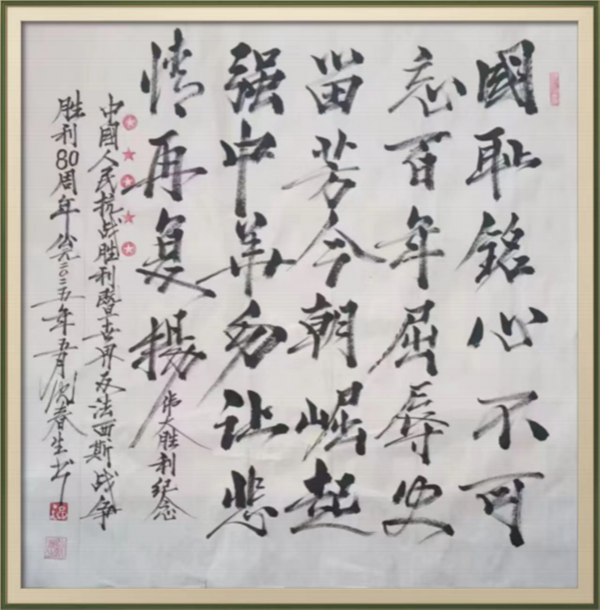 國耻銘心不可
忘百年屈辱史
畄芳今朝崛起
强中華勿让悲
情再复扬
伟大胜利纪念
中國人民抗战胜利暨世界反法西斯战争
胜利80周年 公元二〇二五年五月 春生书